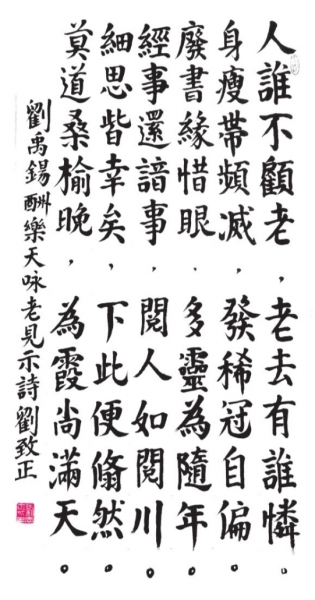 人誰不顧老，老去有誰憐。
身瘦帶頻減，發稀冠自偏。
廢書緣惜眼，多靈為隨年。
經事還諳事，閱人如閱川。
細思皆幸矣，下此便翛然。
莫道桑榆晚，為霞尚滿天。
劉禹錫酬樂天咏老見示詩劉致正